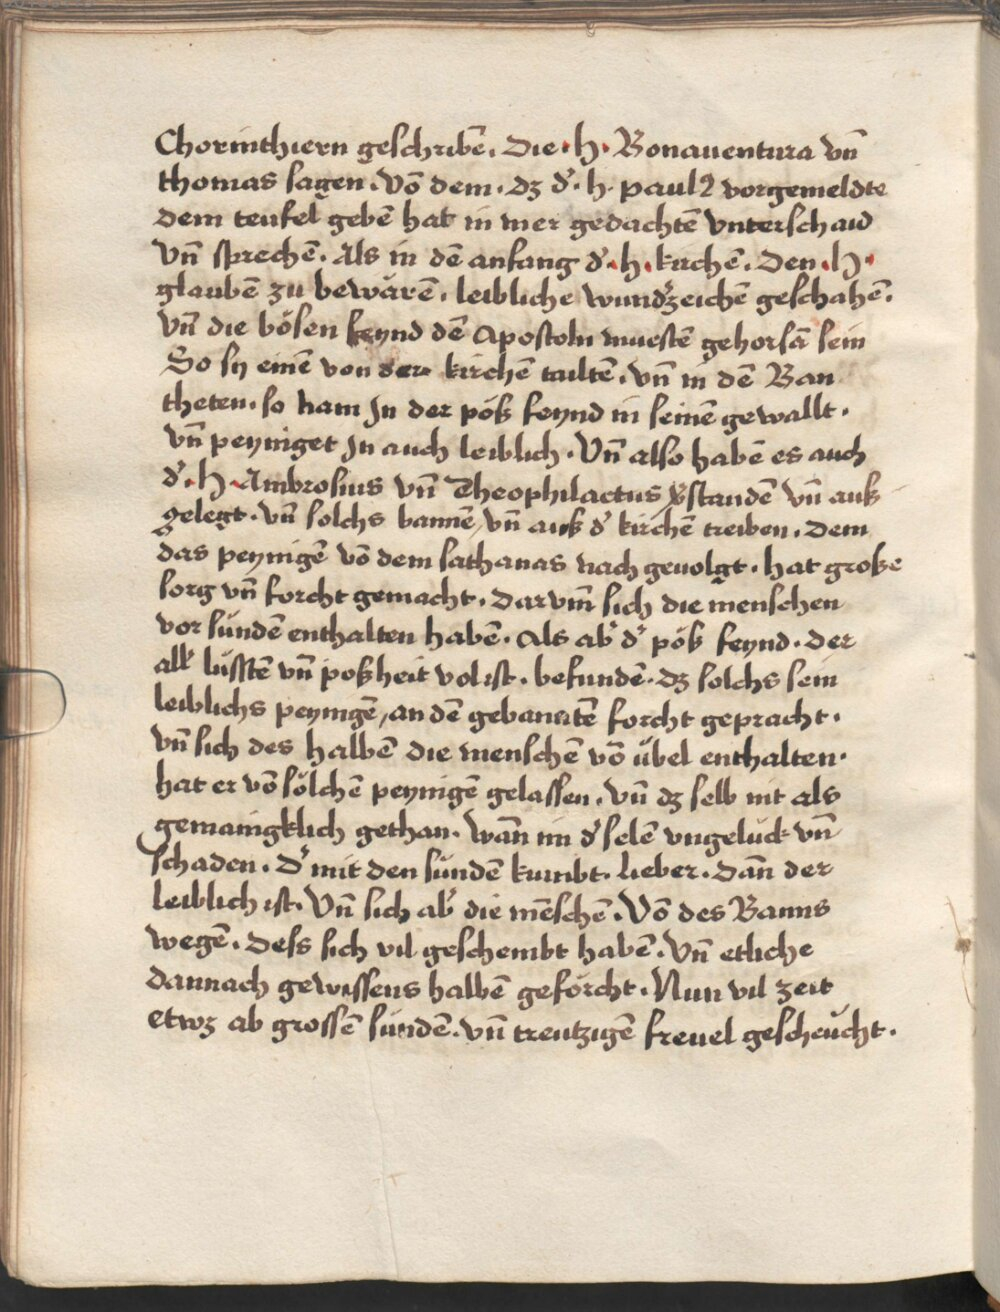 Chorinthiern geschribē. Die · h · Bonauentura vn̄
thomas sagen. Vō dem. dz d᷑. h. paul9 vorgemeldte
dem teufel gebē hat in mer gedachtē vnterschaid
vn̄ sprechē. Als in dē anfang d᷑. h. kirchē. Den. h.
glaubē zu bewärē. leibliche wund᷑zeichē geschahē.
Vn̄ die bösen feynd dē Apostoln muestē gehorsā sein
So sy einē von der kirchē tailtē. vn̄ in dē Ban
theten. so nam Jn der pöß feynd in seinē gewallt.
vn̄ peyniget Jn auch leiblich. Vn̄ also habē es auch
d᷑. h. Ambrosius vn̄ Theophilactus v᷑standē vn̄ auß
gelegt. vn̄ solchs bannē, vn̄ auß d᷑ kirchē treiben. Dem
das peynigē vō dem sathanas nach geuolgt. hat große
sorg vn̄ forcht gemacht. Darvm̄ sich die menschen
vor sünden enthalten habē. Als ab᷑ d᷑ pöß feynd. der
all᷑ lüsstē vn̄ poßheit vol ist. befundē. dz solchs sein
leiblichs peynigē, an dē gebanntē forcht gepracht.
Vn̄ sich des halbē die menschē vō übel enthalten.
hat er vō sölchē peynigē gelassen. vn̄ dz selb nit als
gemaingklich gethan. Wan̄ im d᷑ selē vngelück vn̄
schaden. D᷑ mit den sündē kumbt. lieber. dan̄ der
leiblich ist. Vn̄ sich ab᷑ die mēschē. Vō des Banns
wegē. Dess sich vil geschembt habē. Vn̄ etliche
dannach gewissens halbē geförcht. Nun vil zeit
etwz ab grossē sündē. vn̄ treutzigē freuel gescheücht.